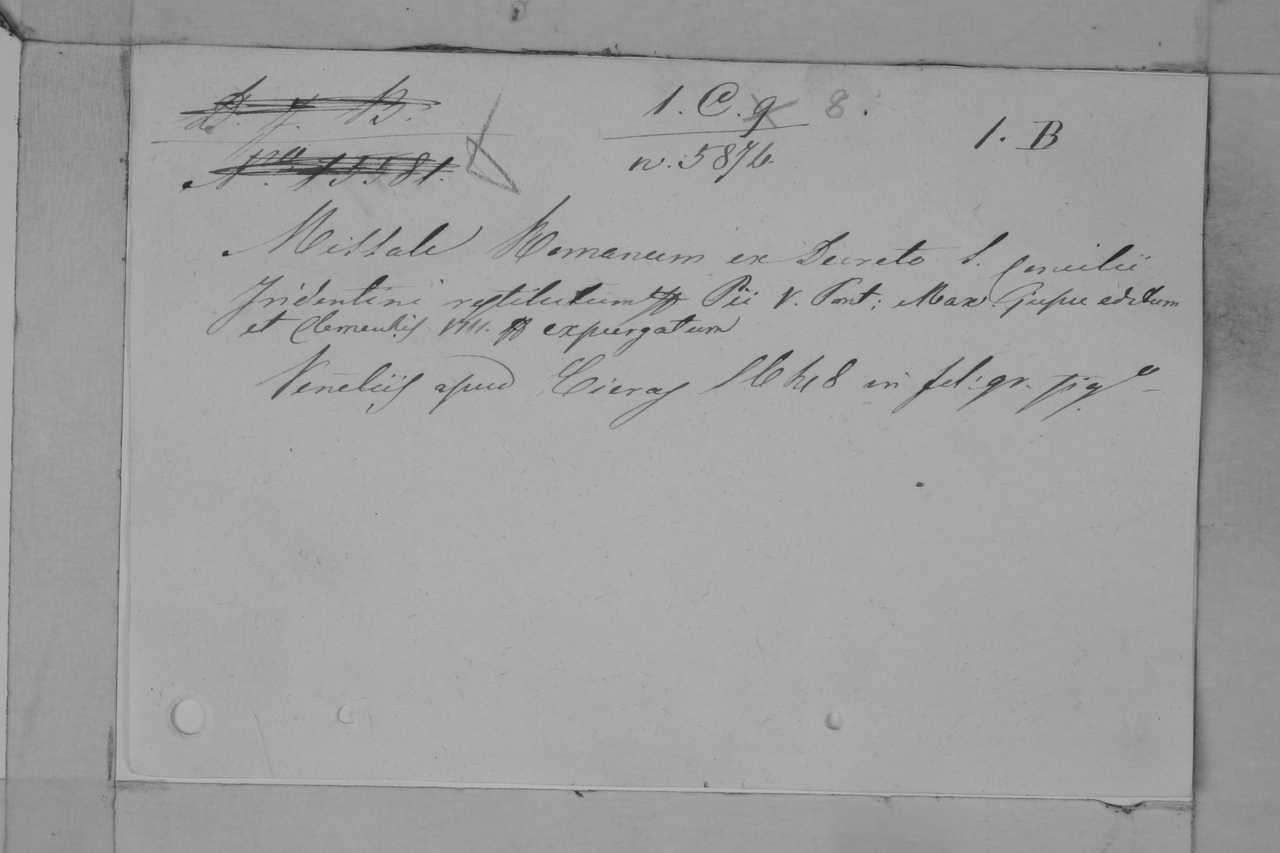 D. y. B.
1. C. g 8.
1. B
N.º 15581.
n. 5876
Missale Romanum ex Decreto S. Concilii
Tridentini restitutum Pii V. Pont: Max. Jussu editum
et Clementis VIII. expurgatum
Venetiis apud Cieras 1648 in fol: gr.